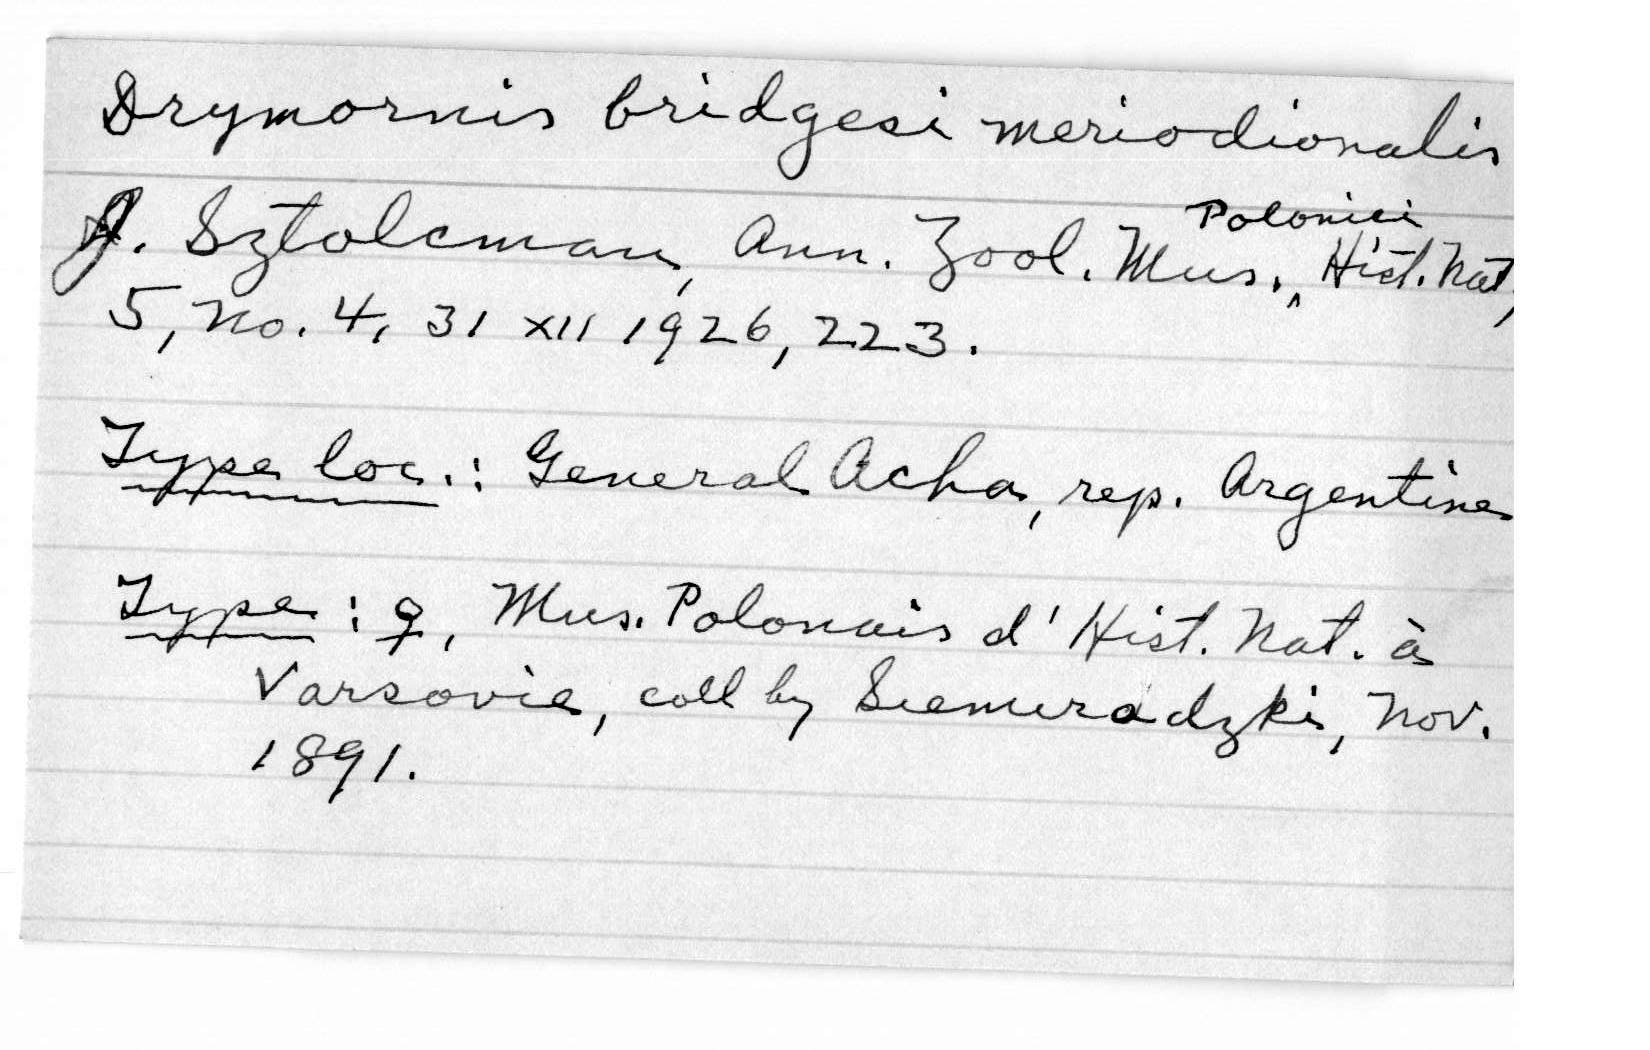 Drymornis bridgesi meriodionalis
J. Sztolcman, Ann. Zool. Mus. Polonici Hist. Nat,
5, No. 4, 31 XII 1926, 223.
Type loc.: General Acha, rep. Argentine
Type: ♀, Mus. Polonais d'Hist. Nat. à
Varsovie, coll by Siemiradzki, Nov.
1891.